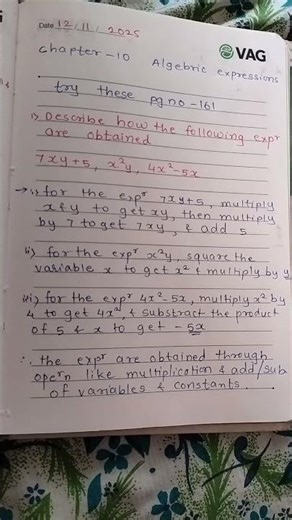 Date 12/11/2025
VAG
Chapter-10 Algebric expressions
try these pg.no-161
1) Describe how the following expr
are obtained
7xy+5, x²y, 4x²-5x
→ i) for the expr 7xy+5, multiply
x & y to get xy, then multiply
by 7 to get 7xy, & add 5
ii) for the expr x²y, square the
variable x to get x² & multiply by y
iii) for the expr 4x²-5x, multiply x² by
4 to get 4x², & substract the product
of 5 & x to get -5x
∴ the expr are obtained through
opern like multiplication & add/sub
of variables & constants.